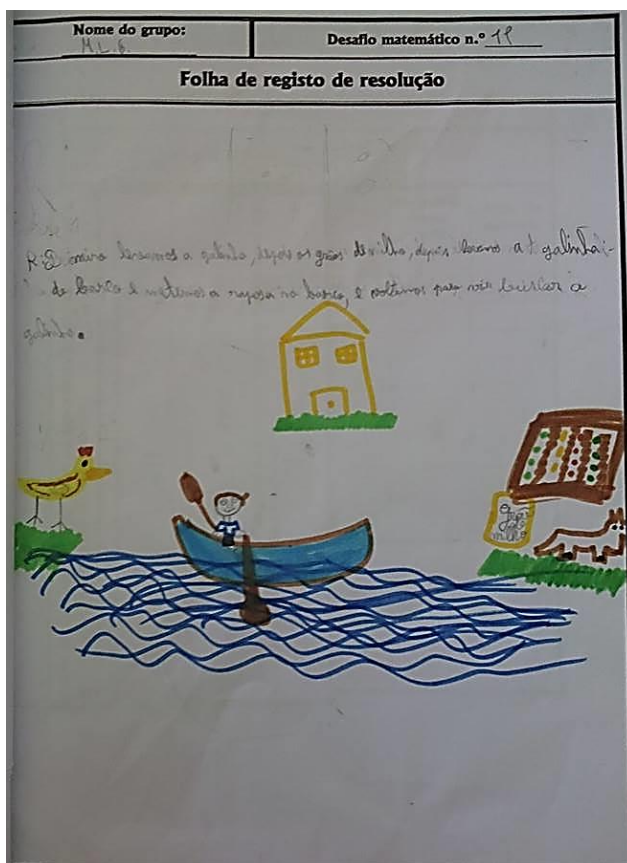 Nome do grupo:
M.L.G.
Desafio matemático n.º 11
Folha de registo de resolução
levamos a galinha, depois os grãos de milho, depois levamos a galinha
de barco e metemos a raposa no barco, e voltamos para vir buscar a
galinha.